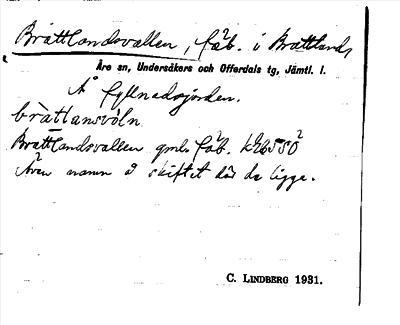 Brattlandsvallen, fäb. i Brattland,
Åre sn, Undersåkers och Offerdals tg, Jämtl. l.
Å fyllnadsjorden.
brattansvòln
Brattlandsvallen gml. fäb.
Även namn å skiftet där de ligga.
C. LINDBERG 1931.